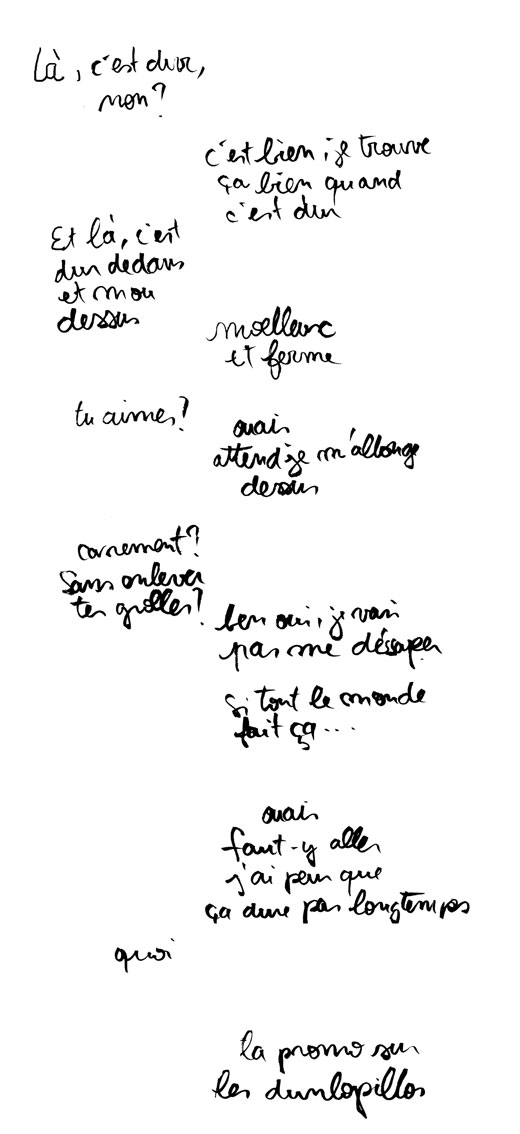 Là, c'est dur,
non?
c'est bien, je trouve
ça bien quand
c'est dur
Et là, c'est
dur dedans
et mou
dessus
moelleux
et ferme
tu aimes?
ouais
attend je m'allonge
dessus
carrement?
Sans enlever
tes grolles?
ben oui, je vais
pas me désaper
Si tout le monde
fait ça...
ouais
faut-y aller
j'ai peur que
ça dure pas longtemps
quoi
la promo sur
les dunlopillos